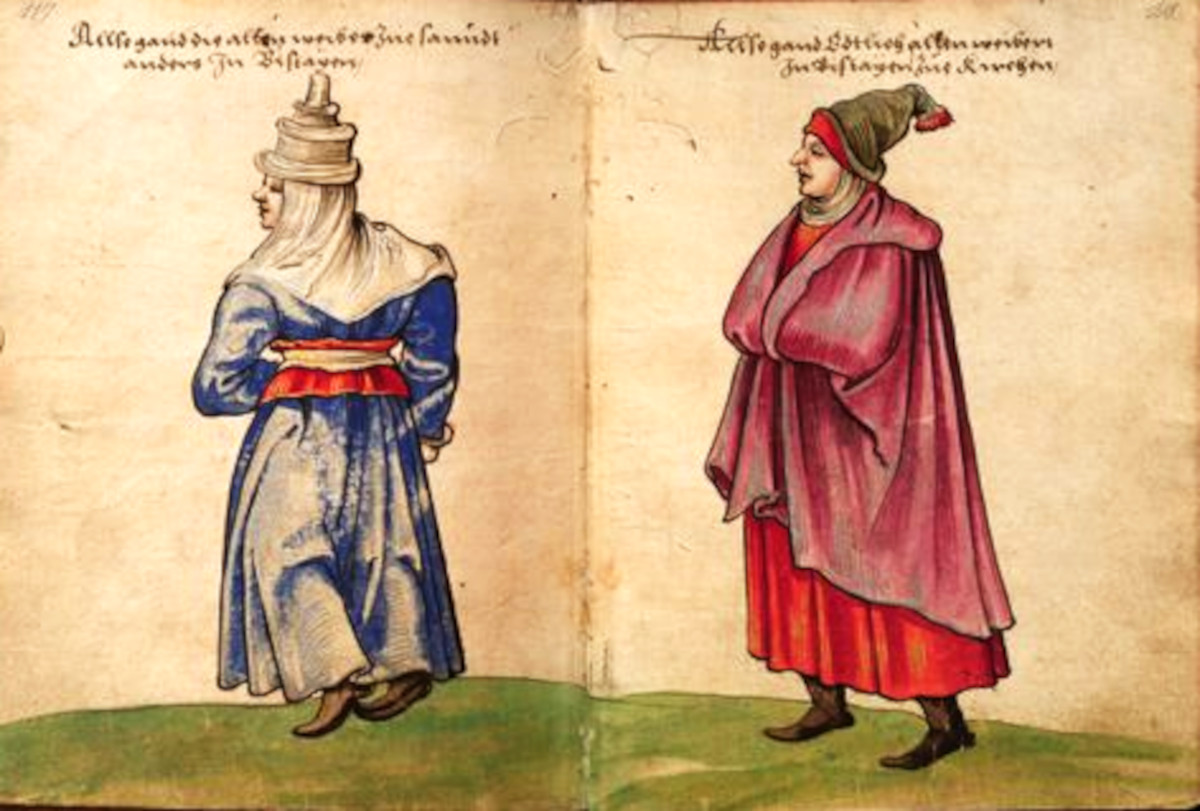 Allso gand die alten weiber zue sanndt
anders In Biscayen
Allso gand Edtlich alten weiber
In Biscayen zue Kirchen